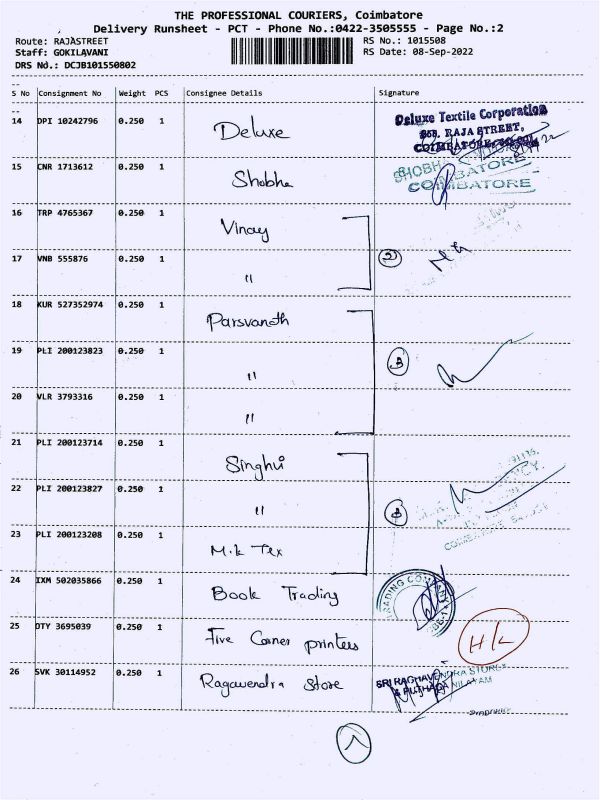 THE PROFESSIONAL COURIERS, Coimbatore
Delivery Runsheet - PCT - Phone No.:0422-3505555 - Page No.:2
Route: RAJASTREET
Staff: GOKILAVANI
DRS No.: DCJB101550802
RS No.: 1015508
RS Date: 08-Sep-2022
S No Consignment No Weight PCS Consignee Details Signature
14 DPI 10242796 0.250 1 Deluxe
Deluxe Textile Corporation
RAJA STREET,
15 CNR 1713612 0.250 1 Shobha
SHOBHA
COIMBATORE
16 TRP 4765367 0.250 1 Vinay
17 VNB 555876 0.250 1 "
18 KUR 527352974 0.250 1 Parsvanath
19 PLI 200123823 0.250 1 " 3
20 VLR 3793316 0.250 1 "
21 PLI 200123714 0.250 1 Singhvi
22 PLI 200123827 0.250 1 "
23 PLI 200123208 0.250 1 M.k Tex
24 IXM 502035866 0.250 1 Book Trading
TRADING COMPANY
25 DTY 3695039 0.250 1 Five Corner printers H/L
26 SVK 30114952 0.250 1 Ragavendra Store
SRI RAGHAVENDRA STORES
& PUTHAGA NILAYAM